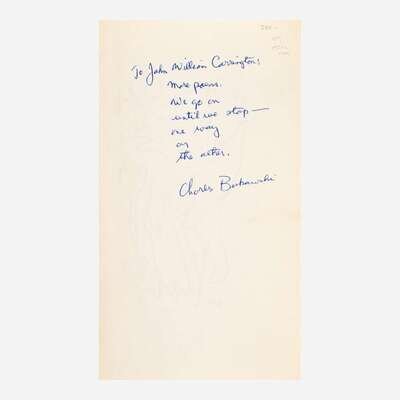 To John William Corrington:
more poems.
we go on
until we stop —
one way
or
the other.
Charles Bukowski